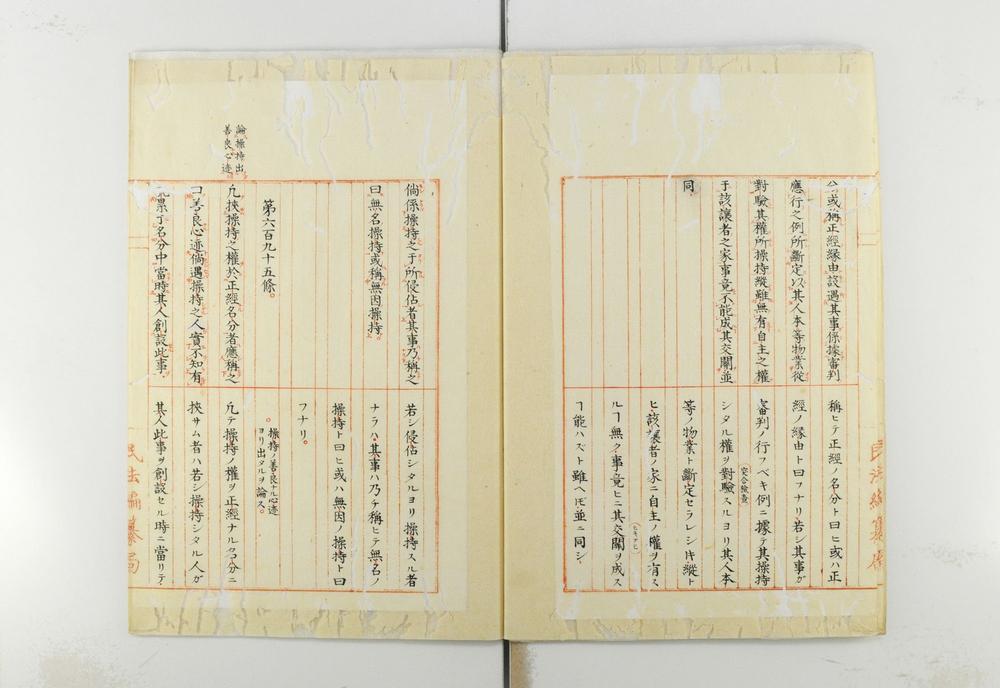 分或稱正經縁由設遇其事係據審判
應行之例所斷定以其人本等物業從
對驗其權所操持縱雖無有自主之權
于該讓者之家事竟不能成其交關並
同
稱ヒテ正經ノ名分ト曰ヒ或ハ正
經ノ縁由ト曰フナリ若シ其事ガ
審判ノ行フベキ例ニ據テ其操持
シタル權ヲ對驗スルヨリ其人本
突合檢査
等ノ物業ト斷定セラレシ𪜈縱ト
ヒ該讓者ノ家ニ自主ノ權ヲ有ス
ルヿ無ク事竟ヒニ其交關ヲ成ス
ヿ能ハズト雖ヘ𪜈並ニ同シ
民法編纂局
倘係操持之于所侵佔者其事乃稱之
曰無名操持或稱無因操持
第六百九十五條
論操持出
善良心迹
凢挾操持之權於正經名分者應稱之
曰善良心迹倘遇操持之人實不知有
累于名分中當時其人創設此事
若シ侵佔シタルヨリ操持スル者
ナラハ其事ハ乃チ稱ヒテ無名ノ
操持ト曰ヒ或ハ無因ノ操持ト曰
フナリ
操持ノ善良ナル心迹
ヨリ出タルヲ論ス
凢テ操持ノ權ヲ正經ナル名分ニ
挾サム者ハ若シ操持シタル人ガ
其人此事ヲ創設セル時ニ當リテ
民法編纂局